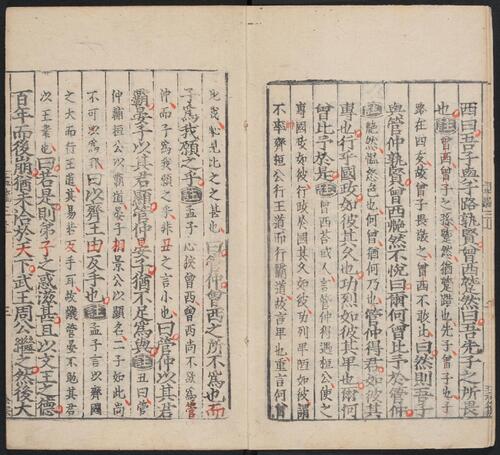 西曰吾子與子路孰賢曾西蹵然曰吾先子之所畏
也註曾西曾子之孫蹵然猶蹵踖也先子曾子也子
路在四友故曾子畏敬之曾西不敢比曰然則吾子
與管仲孰賢曾西艴然不悅曰爾何曾比予於管仲
註艴然慍怒色也何曾猶何乃也管仲得君如彼其
專也行乎國政如彼其久也功烈如彼其卑也爾何
曾比予於是註曾西荅或人言管仲得遇桓公使之
專國政如彼行政於國其久如彼功烈卑陋如彼謂
不率齊桓公行王道而行霸道故言卑也重言何曾
比我恥見比之之甚也曰管仲曾西之所不爲也而
子爲我願之乎註孟子心狹曾西曾西尚不欲爲管
仲而子爲我願之乎非丑之言小也曰管仲以其君
霸晏子以其君顯管仲晏子猶不足爲與註丑曰管
仲輔桓公以霸道晏子相景公以顯名二子如此尚
不可以爲邪曰以齊王由反手也註孟子言以齊國
之大而行王道其易若反手耳故譏管晏不勉其君
以王業也曰若是則弟子之惑滋甚且以文王之德
百年而後崩猶未洽於天下武王周公繼之然後大